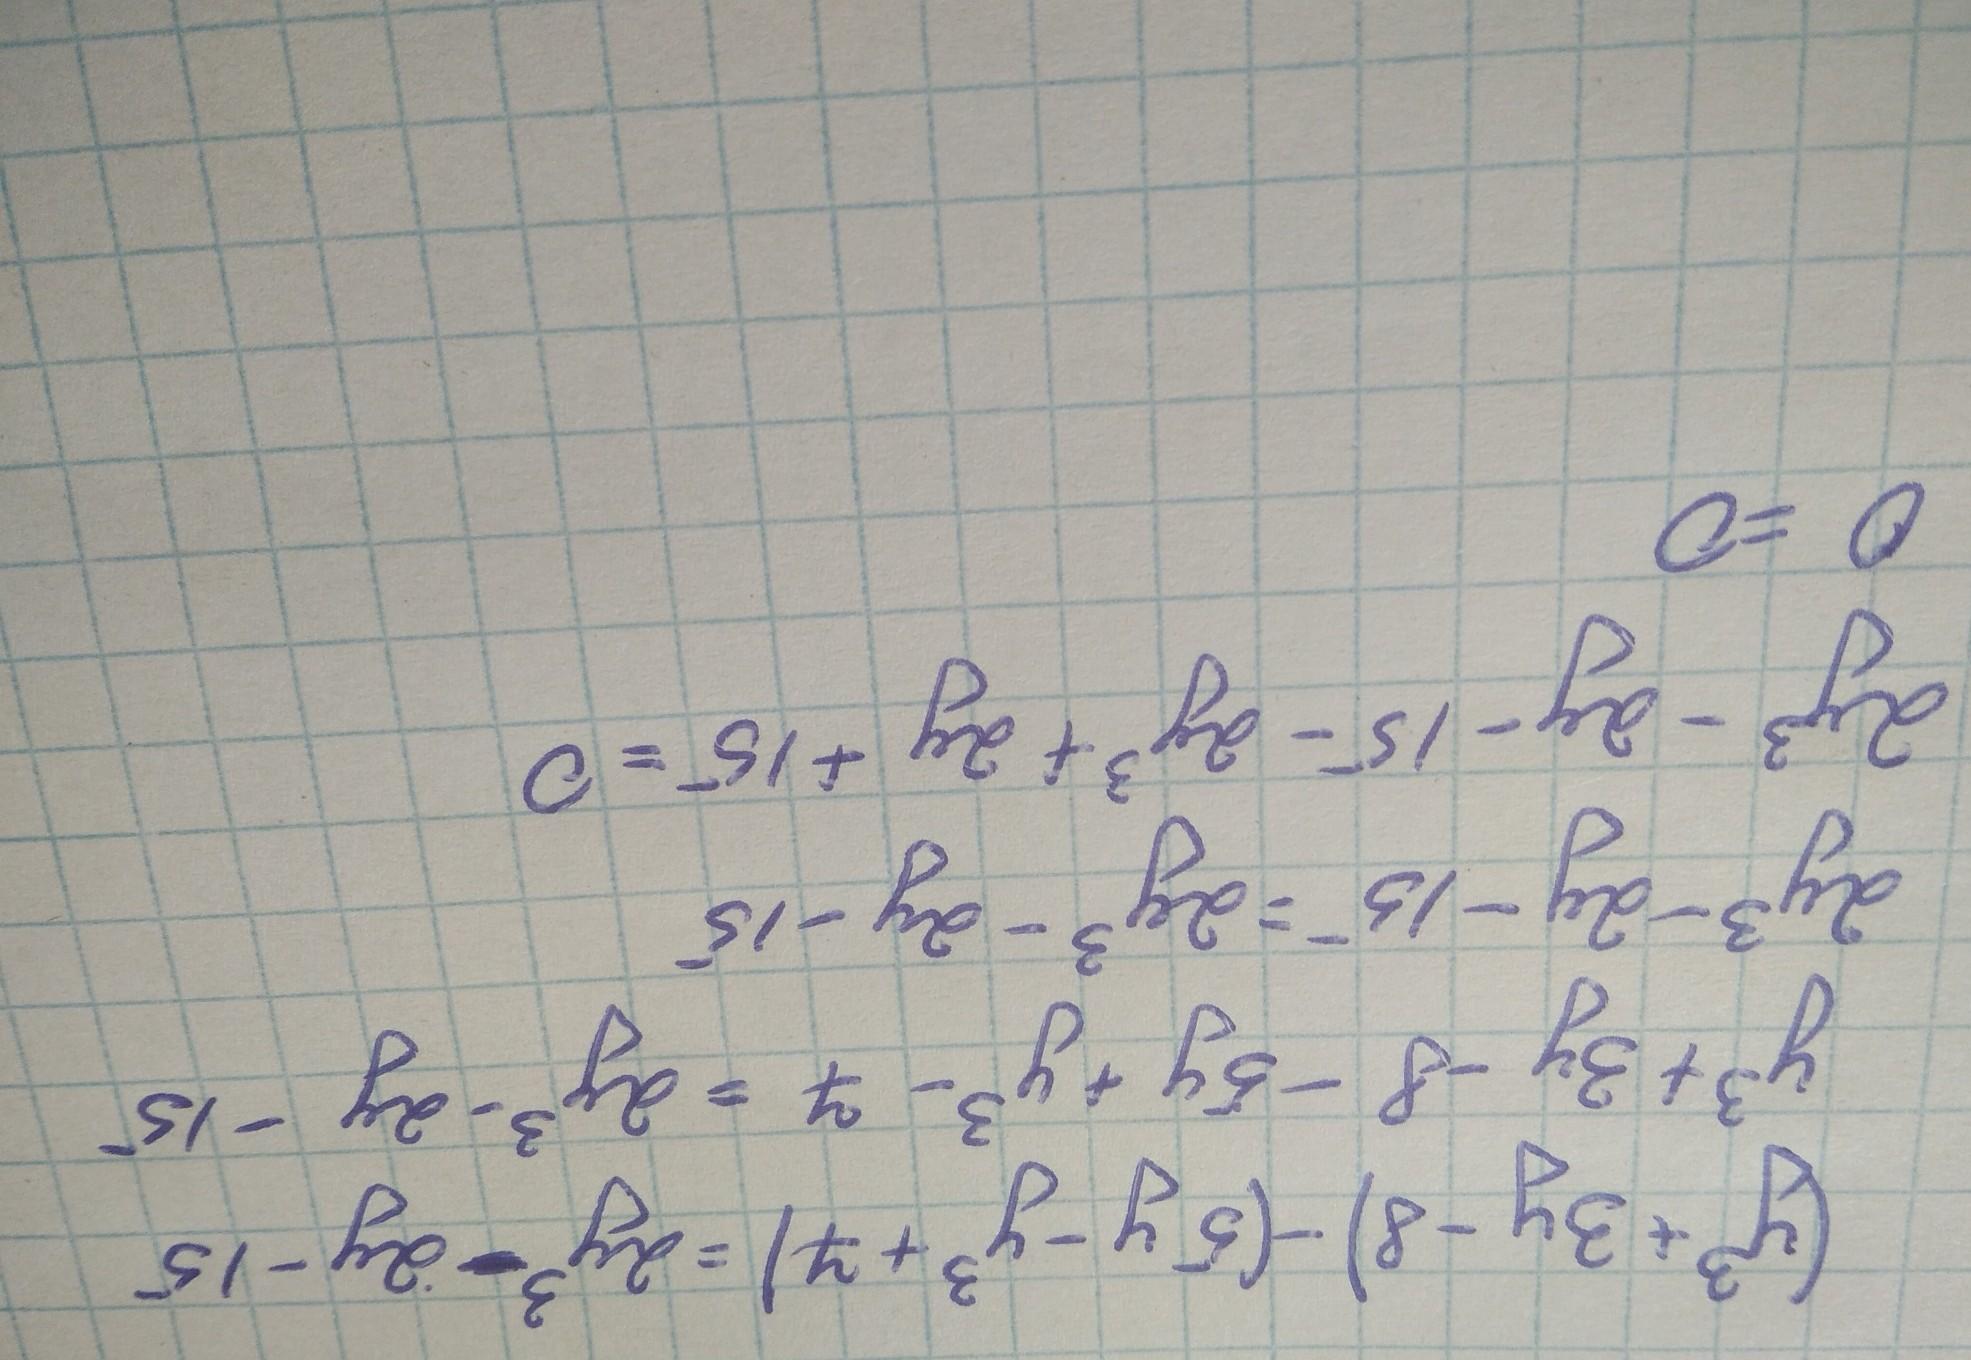 (y³+3y-8)-(5y-y³+7)=2y³-2y-15
y³+3y-8-5y+y³-7=2y³-2y-15
2y³-2y-15=2y³-2y-15
2y³-2y-15-2y³+2y+15=0
0=0